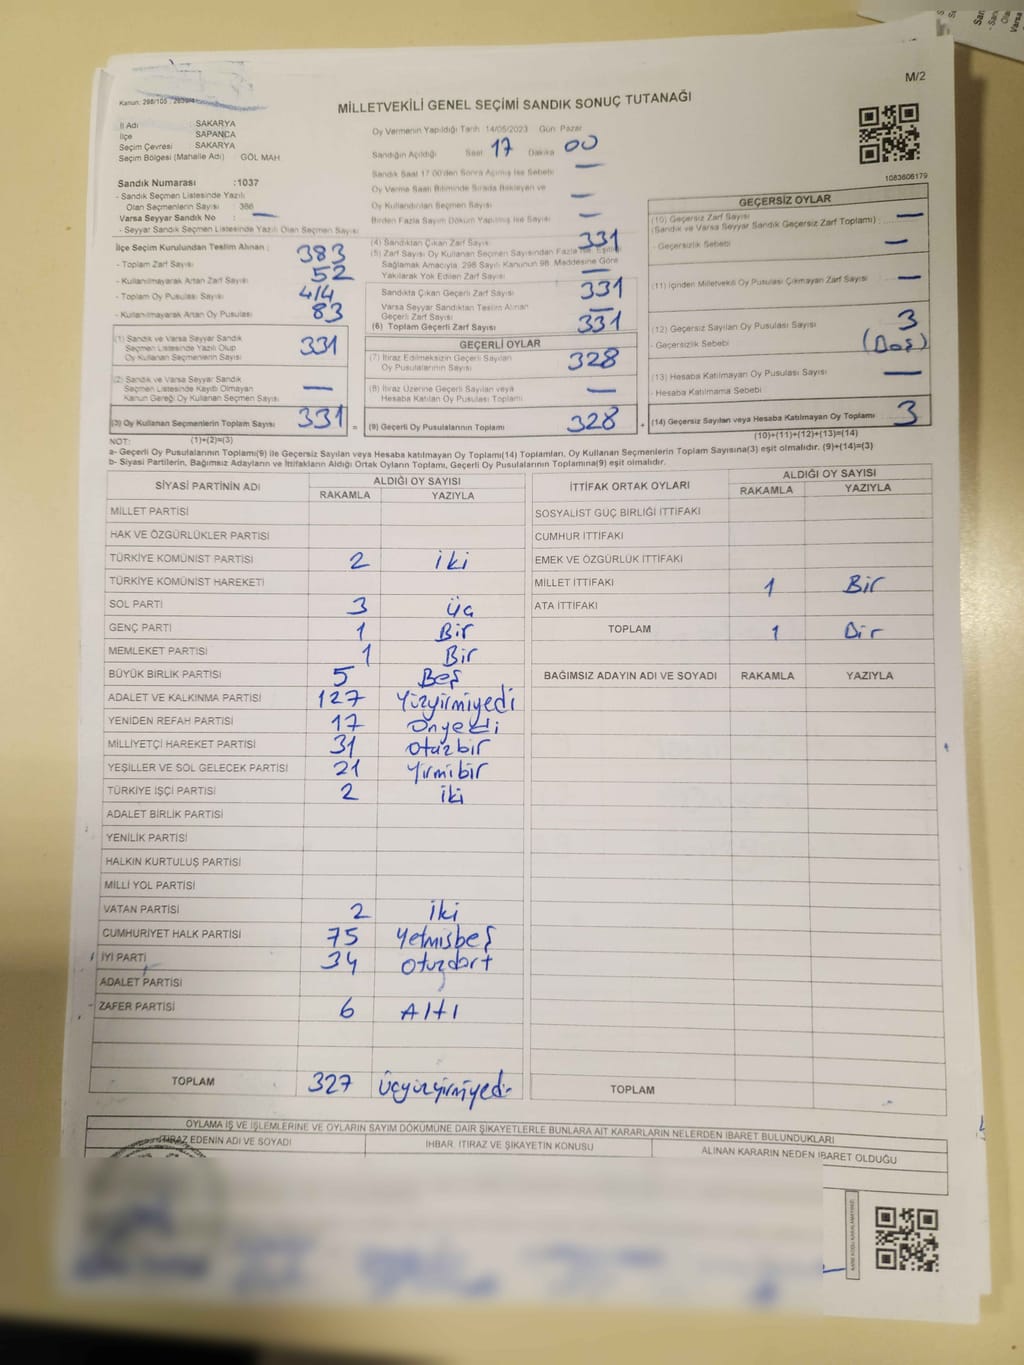 M/2
Kanun: 298/105 , 2839/4
MİLLETVEKİLİ GENEL SEÇİMİ SANDIK SONUÇ TUTANAĞI
İl Adı : SAKARYA
İlçe : SAPANCA
Seçim Çevresi : SAKARYA
Seçim Bölgesi (Mahalle Adı) GÖL MAH
Sandık Numarası :1037
- Sandık Seçmen Listesinde Yazılı
Olan Seçmenlerin Sayısı : 386
Varsa Seyyar Sandık No : —
- Seyyar Sandık Seçmen Listesinde Yazılı Olan Seçmen Sayısı
İlçe Seçim Kurulundan Teslim Alınan :
- Toplam Zarf Sayısı 383
- Kullanılmayarak Artan Zarf Sayısı 52
- Toplam Oy Pusulası Sayısı 414
- Kullanılmayarak Artan Oy Pusulası 83
(1) Sandık ve Varsa Seyyar Sandık
Seçmen Listesinde Yazılı Olup
Oy Kullanan Seçmenlerin Sayısı 331
(2) Sandık ve Varsa Seyyar Sandık
Seçmen Listesinde Kayıtlı Olmayan
Kanun Gereği Oy Kullanan Seçmen Sayısı —
(3) Oy Kullanan Seçmenlerin Toplam Sayısı 331 =
Oy Vermenin Yapıldığı Tarih 14/05/2023 Gün Pazar
Sandığın Açıldığı Saat 17 Dakika 00
Sandık Saat 17.00'den Sonra Açılmış İse Sebebi —
Oy Verme Saati Bitiminde Sırada Bekleyen ve
Oy Kullandırılan Seçmen Sayısı —
Birden Fazla Sayım Döküm Yapılmış İse Sayısı —
(4) Sandıktan Çıkan Zarf Sayısı 331
(5) Zarf Sayısı Oy Kullanan Seçmen Sayısından Fazla İse, Eşitliği
Sağlamak Amacıyla, 298 Sayılı Kanunun 98. Maddesine Göre
Yakılarak Yok Edilen Zarf Sayısı —
Sandıkta Çıkan Geçerli Zarf Sayısı 331
Varsa Seyyar Sandıktan Teslim Alınan
Geçerli Zarf Sayısı —
(6) Toplam Geçerli Zarf Sayısı 331
GEÇERLİ OYLAR
(7) İtiraz Edilmeksizin Geçerli Sayılan
Oy Pusulalarının Sayısı 328
(8) İtiraz Üzerine Geçerli Sayılan veya
Hesaba Katılan Oy Pusulası Toplamı —
(9) Geçerli Oy Pusulalarının Toplamı 328 +
1083606179
GEÇERSİZ OYLAR
(10) Geçersiz Zarf Sayısı
(Sandık ve Varsa Seyyar Sandık Geçersiz Zarf Toplamı) : —
- Geçersizlik Sebebi —
(11) İçinden Milletvekili Oy Pusulası Çıkmayan Zarf Sayısı —
(12) Geçersiz Sayılan Oy Pusulası Sayısı 3
- Geçersizlik Sebebi (Boş)
(13) Hesaba Katılmayan Oy Pusulası Sayısı —
- Hesaba Katılmama Sebebi
(14) Geçersiz Sayılan veya Hesaba Katılmayan Oy Toplamı 3
NOT: (1)+(2)=(3) (10)+(11)+(12)+(13)=(14)
a- Geçerli Oy Pusulalarının Toplamı(9) ile Geçersiz Sayılan veya Hesaba katılmayan Oy Toplamı(14) Toplamları, Oy Kullanan Seçmenlerin Toplam Sayısına(3) eşit olmalıdır. (9)+(14)=(3)
b- Siyasi Partilerin, Bağımsız Adayların ve İttifakların Aldığı Ortak Oyların Toplamı, Geçerli Oy Pusulalarının Toplamına(9) eşit olmalıdır.
SİYASİ PARTİNİN ADI ALDIĞI OY SAYISI
RAKAMLA YAZIYLA
MİLLET PARTİSİ
HAK VE ÖZGÜRLÜKLER PARTİSİ
TÜRKİYE KOMÜNİST PARTİSİ 2 iki
TÜRKİYE KOMÜNİST HAREKETİ
SOL PARTİ 3 üç
GENÇ PARTİ 1 Bir
MEMLEKET PARTİSİ 1 Bir
BÜYÜK BİRLİK PARTİSİ 5 Beş
ADALET VE KALKINMA PARTİSİ 127 Yüzyirmiyedi
YENİDEN REFAH PARTİSİ 17 Onyedi
MİLLİYETÇİ HAREKET PARTİSİ 31 otuzbir
YEŞİLLER VE SOL GELECEK PARTİSİ 21 Yirmibir
TÜRKİYE İŞÇİ PARTİSİ 2 iki
ADALET BİRLİK PARTİSİ
YENİLİK PARTİSİ
HALKIN KURTULUŞ PARTİSİ
MİLLİ YOL PARTİSİ
VATAN PARTİSİ 2 iki
CUMHURİYET HALK PARTİSİ 75 Yetmişbeş
İYİ PARTİ 34 otuzdört
ADALET PARTİSİ
ZAFER PARTİSİ 6 Altı
TOPLAM 327 Üçyüzyirmiyedi
İTTİFAK ORTAK OYLARI ALDIĞI OY SAYISI
RAKAMLA YAZIYLA
SOSYALİST GÜÇ BİRLİĞİ İTTİFAKI
CUMHUR İTTİFAKI
EMEK VE ÖZGÜRLÜK İTTİFAKI
MİLLET İTTİFAKI 1 Bir
ATA İTTİFAKI
TOPLAM 1 Bir
BAĞIMSIZ ADAYIN ADI VE SOYADI RAKAMLA YAZIYLA
TOPLAM
OYLAMA İŞ VE İŞLEMLERİNE VE OYLARIN SAYIM DÖKÜMÜNE DAİR ŞİKAYETLERLE BUNLARA AİT KARARLARIN NELERDEN İBARET BULUNDUKLARI
İTİRAZ EDENİN ADI VE SOYADI İHBAR, İTİRAZ VE ŞİKAYETİN KONUSU ALINAN KARARIN NEDEN İBARET OLDUĞU